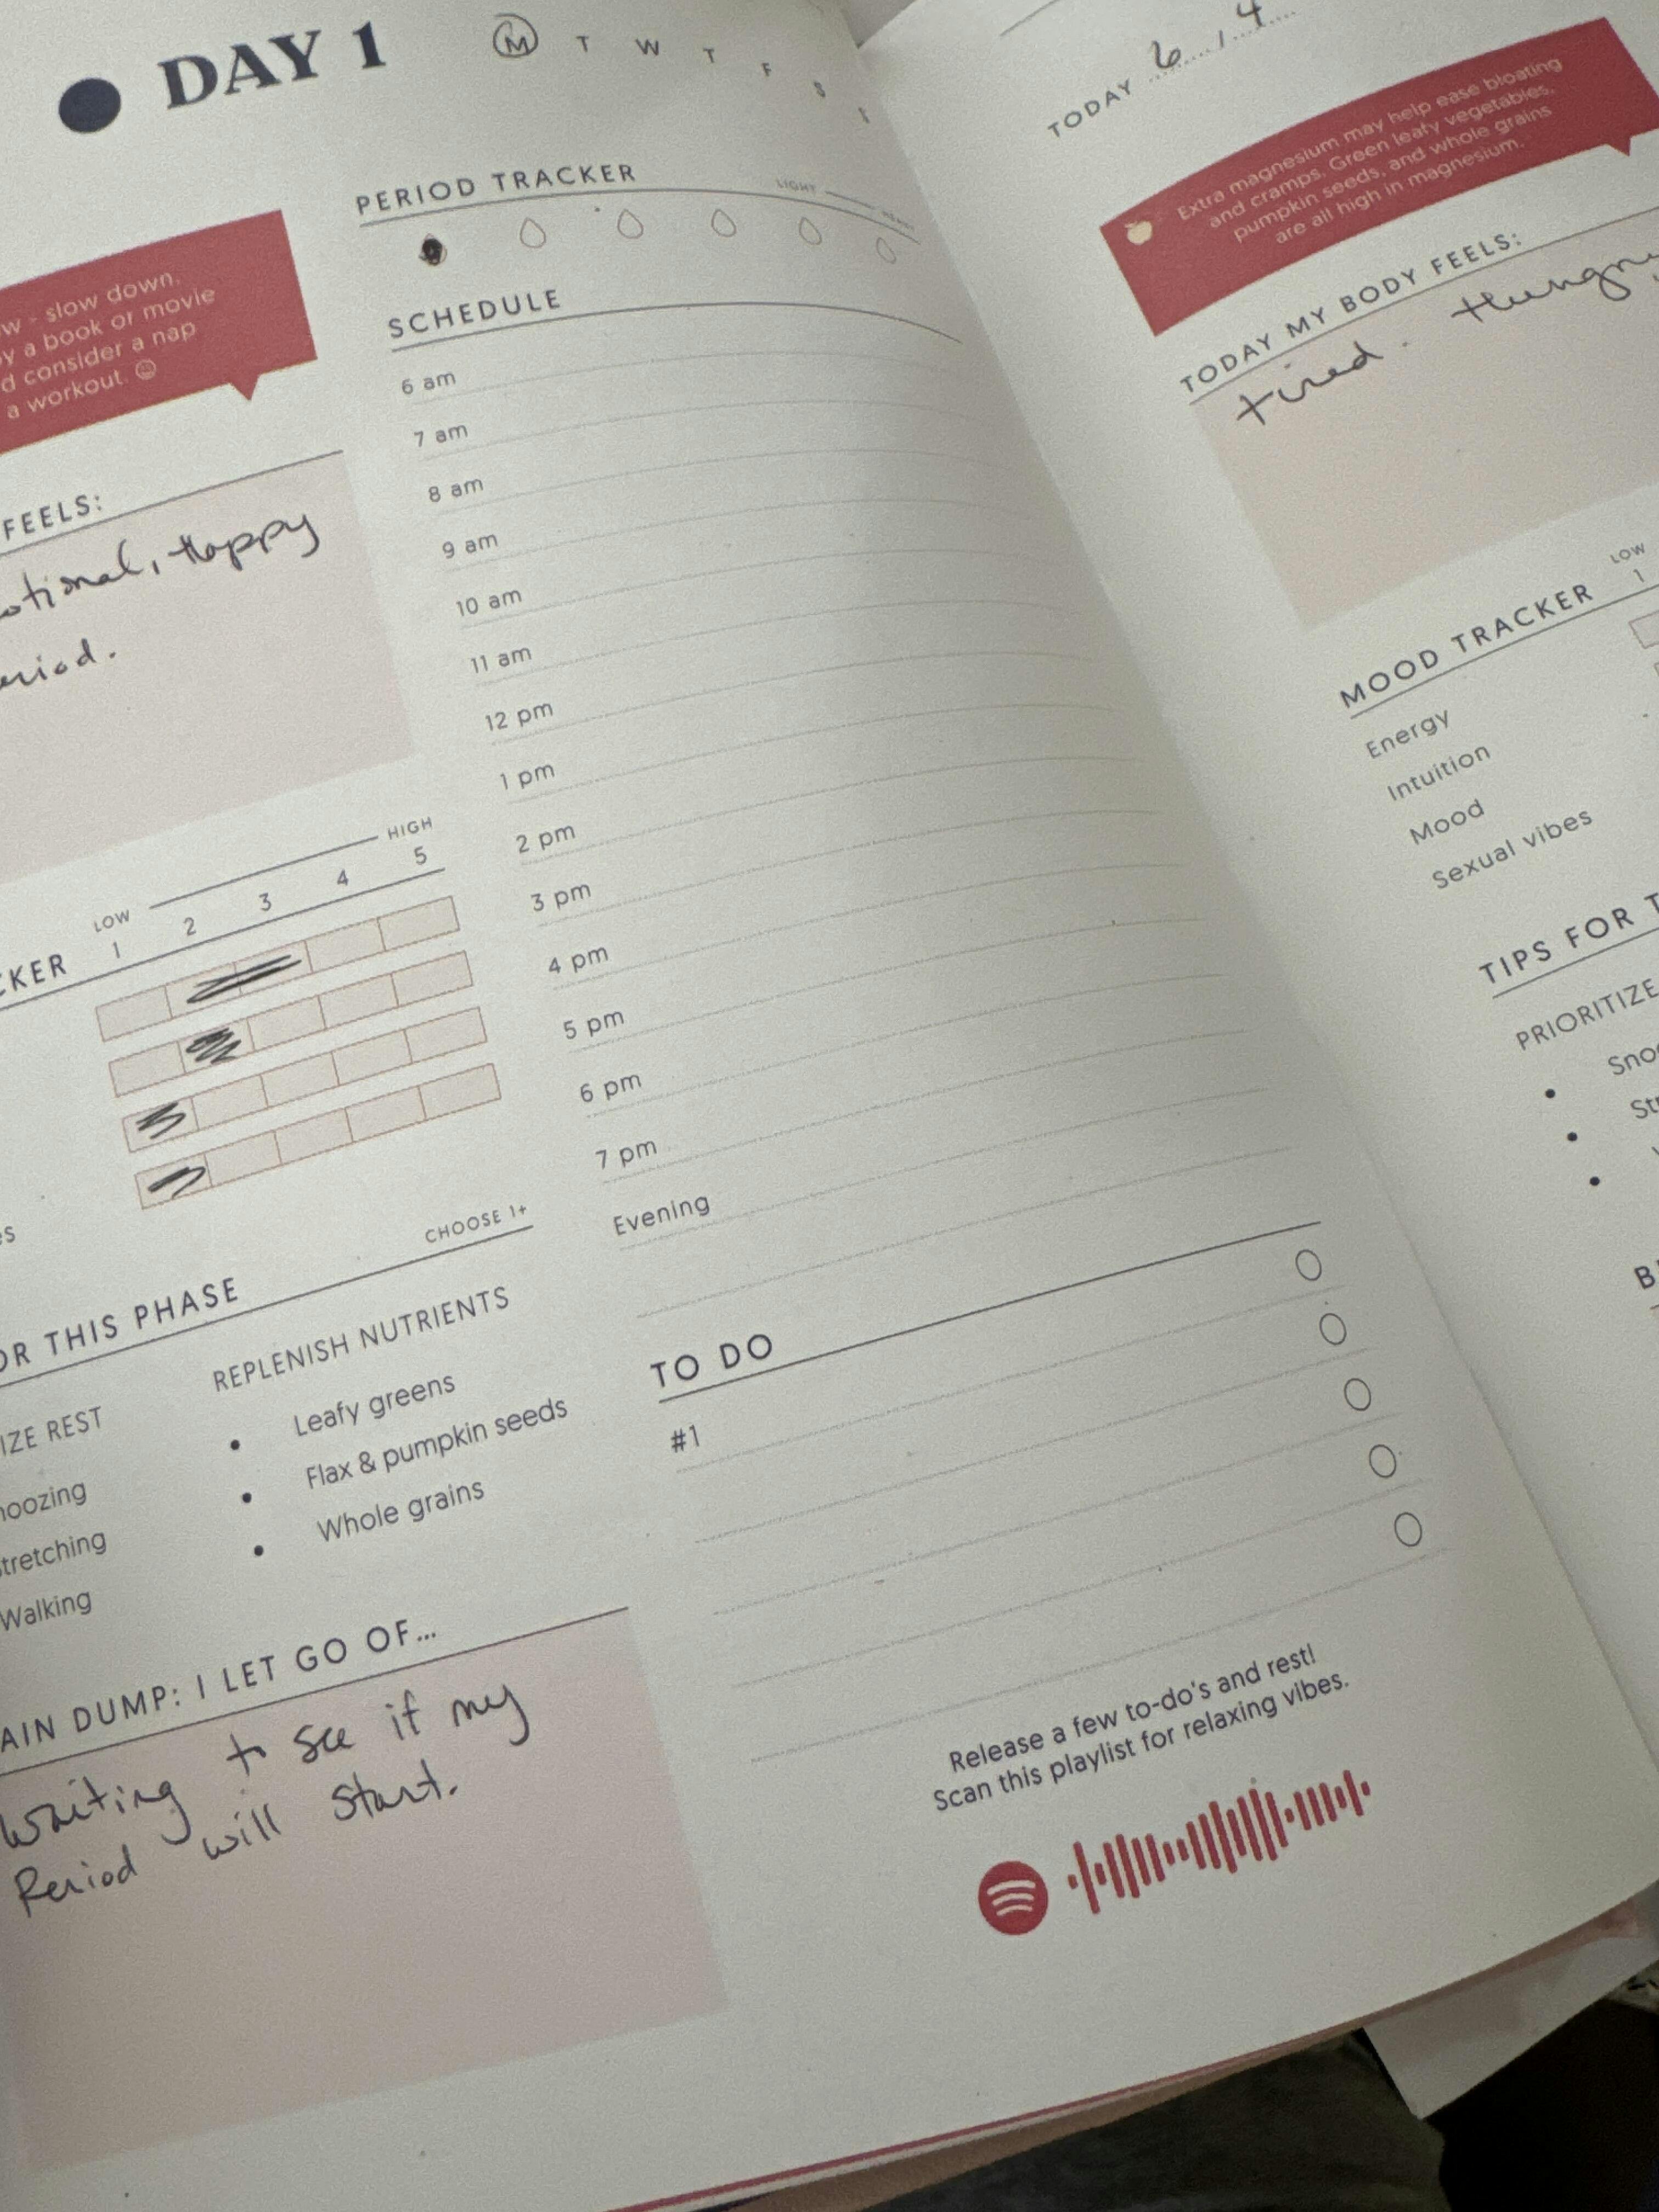 DAY 1
M T W T F S S
PERIOD TRACKER
LIGHT HEAVY
- slow down,
a book or movie
consider a nap
a workout. ☺
FEELS:
Happy
SCHEDULE
6 am
7 am
8 am
9 am
10 am
11 am
12 pm
1 pm
2 pm
3 pm
4 pm
5 pm
6 pm
7 pm
Evening
LOW HIGH
1 2 3 4 5
CHOOSE 1+
THIS PHASE
REST
REPLENISH NUTRIENTS
Leafy greens
Flax & pumpkin seeds
Whole grains
Walking
DUMP: I LET GO OF...
Waiting to see if my
Period will start.
TO DO
#1
Release a few to-do's and rest!
Scan this playlist for relaxing vibes.
TODAY 6 / 4
Extra magnesium may help ease bloating
and cramps. Green leafy vegetables,
pumpkin seeds, and whole grains
are all high in magnesium.
TODAY MY BODY FEELS:
tired. Hungry
MOOD TRACKER
LOW
1
Energy
Intuition
Mood
Sexual vibes
TIPS FOR
PRIORITIZE